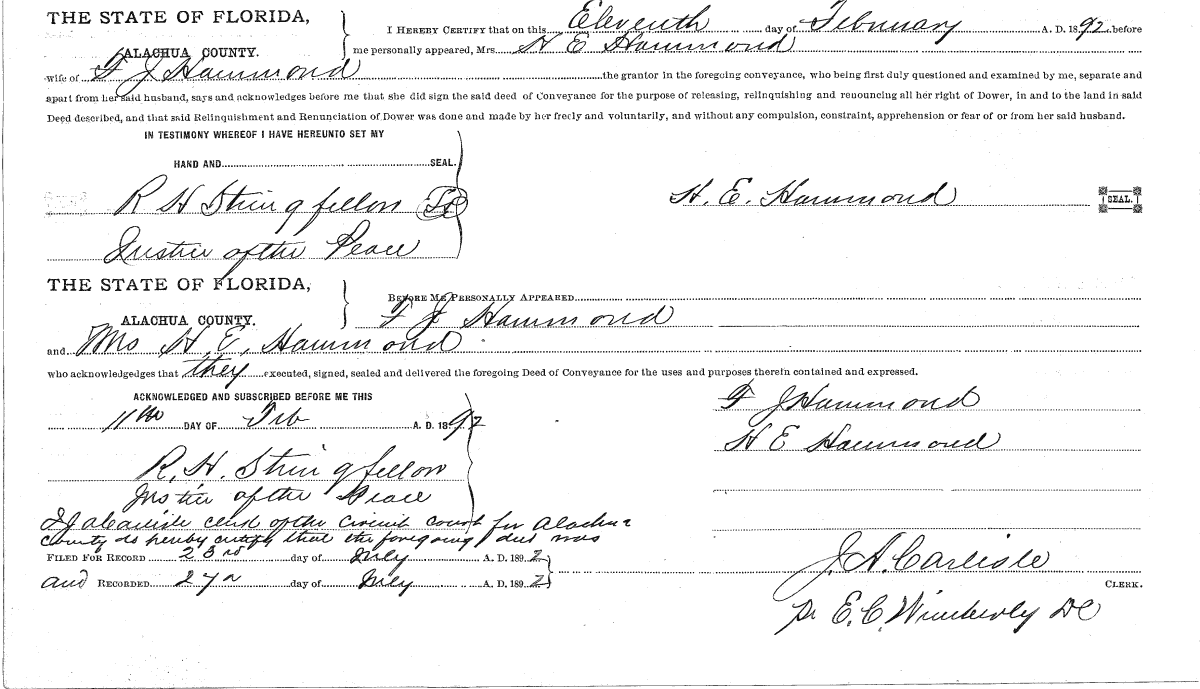 THE STATE OF FLORIDA,
ALACHUA COUNTY.
I HEREBY CERTIFY that on this Eleventh day of February A. D. 1892 before
me personally appeared, Mrs. H E Hammond
wife of F J Hammond the grantor in the foregoing conveyance, who being first duly questioned and examined by me, separate and
apart from her said husband, says and acknowledges before me that she did sign the said deed of Conveyance for the purpose of releasing, relinquishing and renouncing all her right of Dower, in and to the land in said
Deed described, and that said Relinquishment and Renunciation of Dower was done and made by her freely and voluntarily, and without any compulsion, constraint, apprehension or fear of or from her said husband.
IN TESTIMONY WHEREOF I HAVE HEREUNTO SET MY
HAND AND SEAL.
R H Stringfellow
H. E. Hammond SEAL.
Justice of the Peace
THE STATE OF FLORIDA,
ALACHUA COUNTY.
BEFORE ME PERSONALLY APPEARED
F J Hammond
and Mrs H. E. Hammond
who acknowledgedges that they executed, signed, sealed and delivered the foregoing Deed of Conveyance for the uses and purposes therein contained and expressed.
ACKNOWLEDGED AND SUBSCRIBED BEFORE ME THIS
11th DAY OF Feb A. D. 1892
F J Hammond
H E Hammond
R. H. Stringfellow
Justice of the Peace
I J A Carlisle clerk of the Circuit Court for Alachua
County do hereby certify that the foregoing deed was
FILED FOR RECORD 23rd day of July A. D. 1892
and RECORDED 27th day of July A. D. 1892
J. A. Carlisle
CLERK.
Pr E. C. Wimberly DC